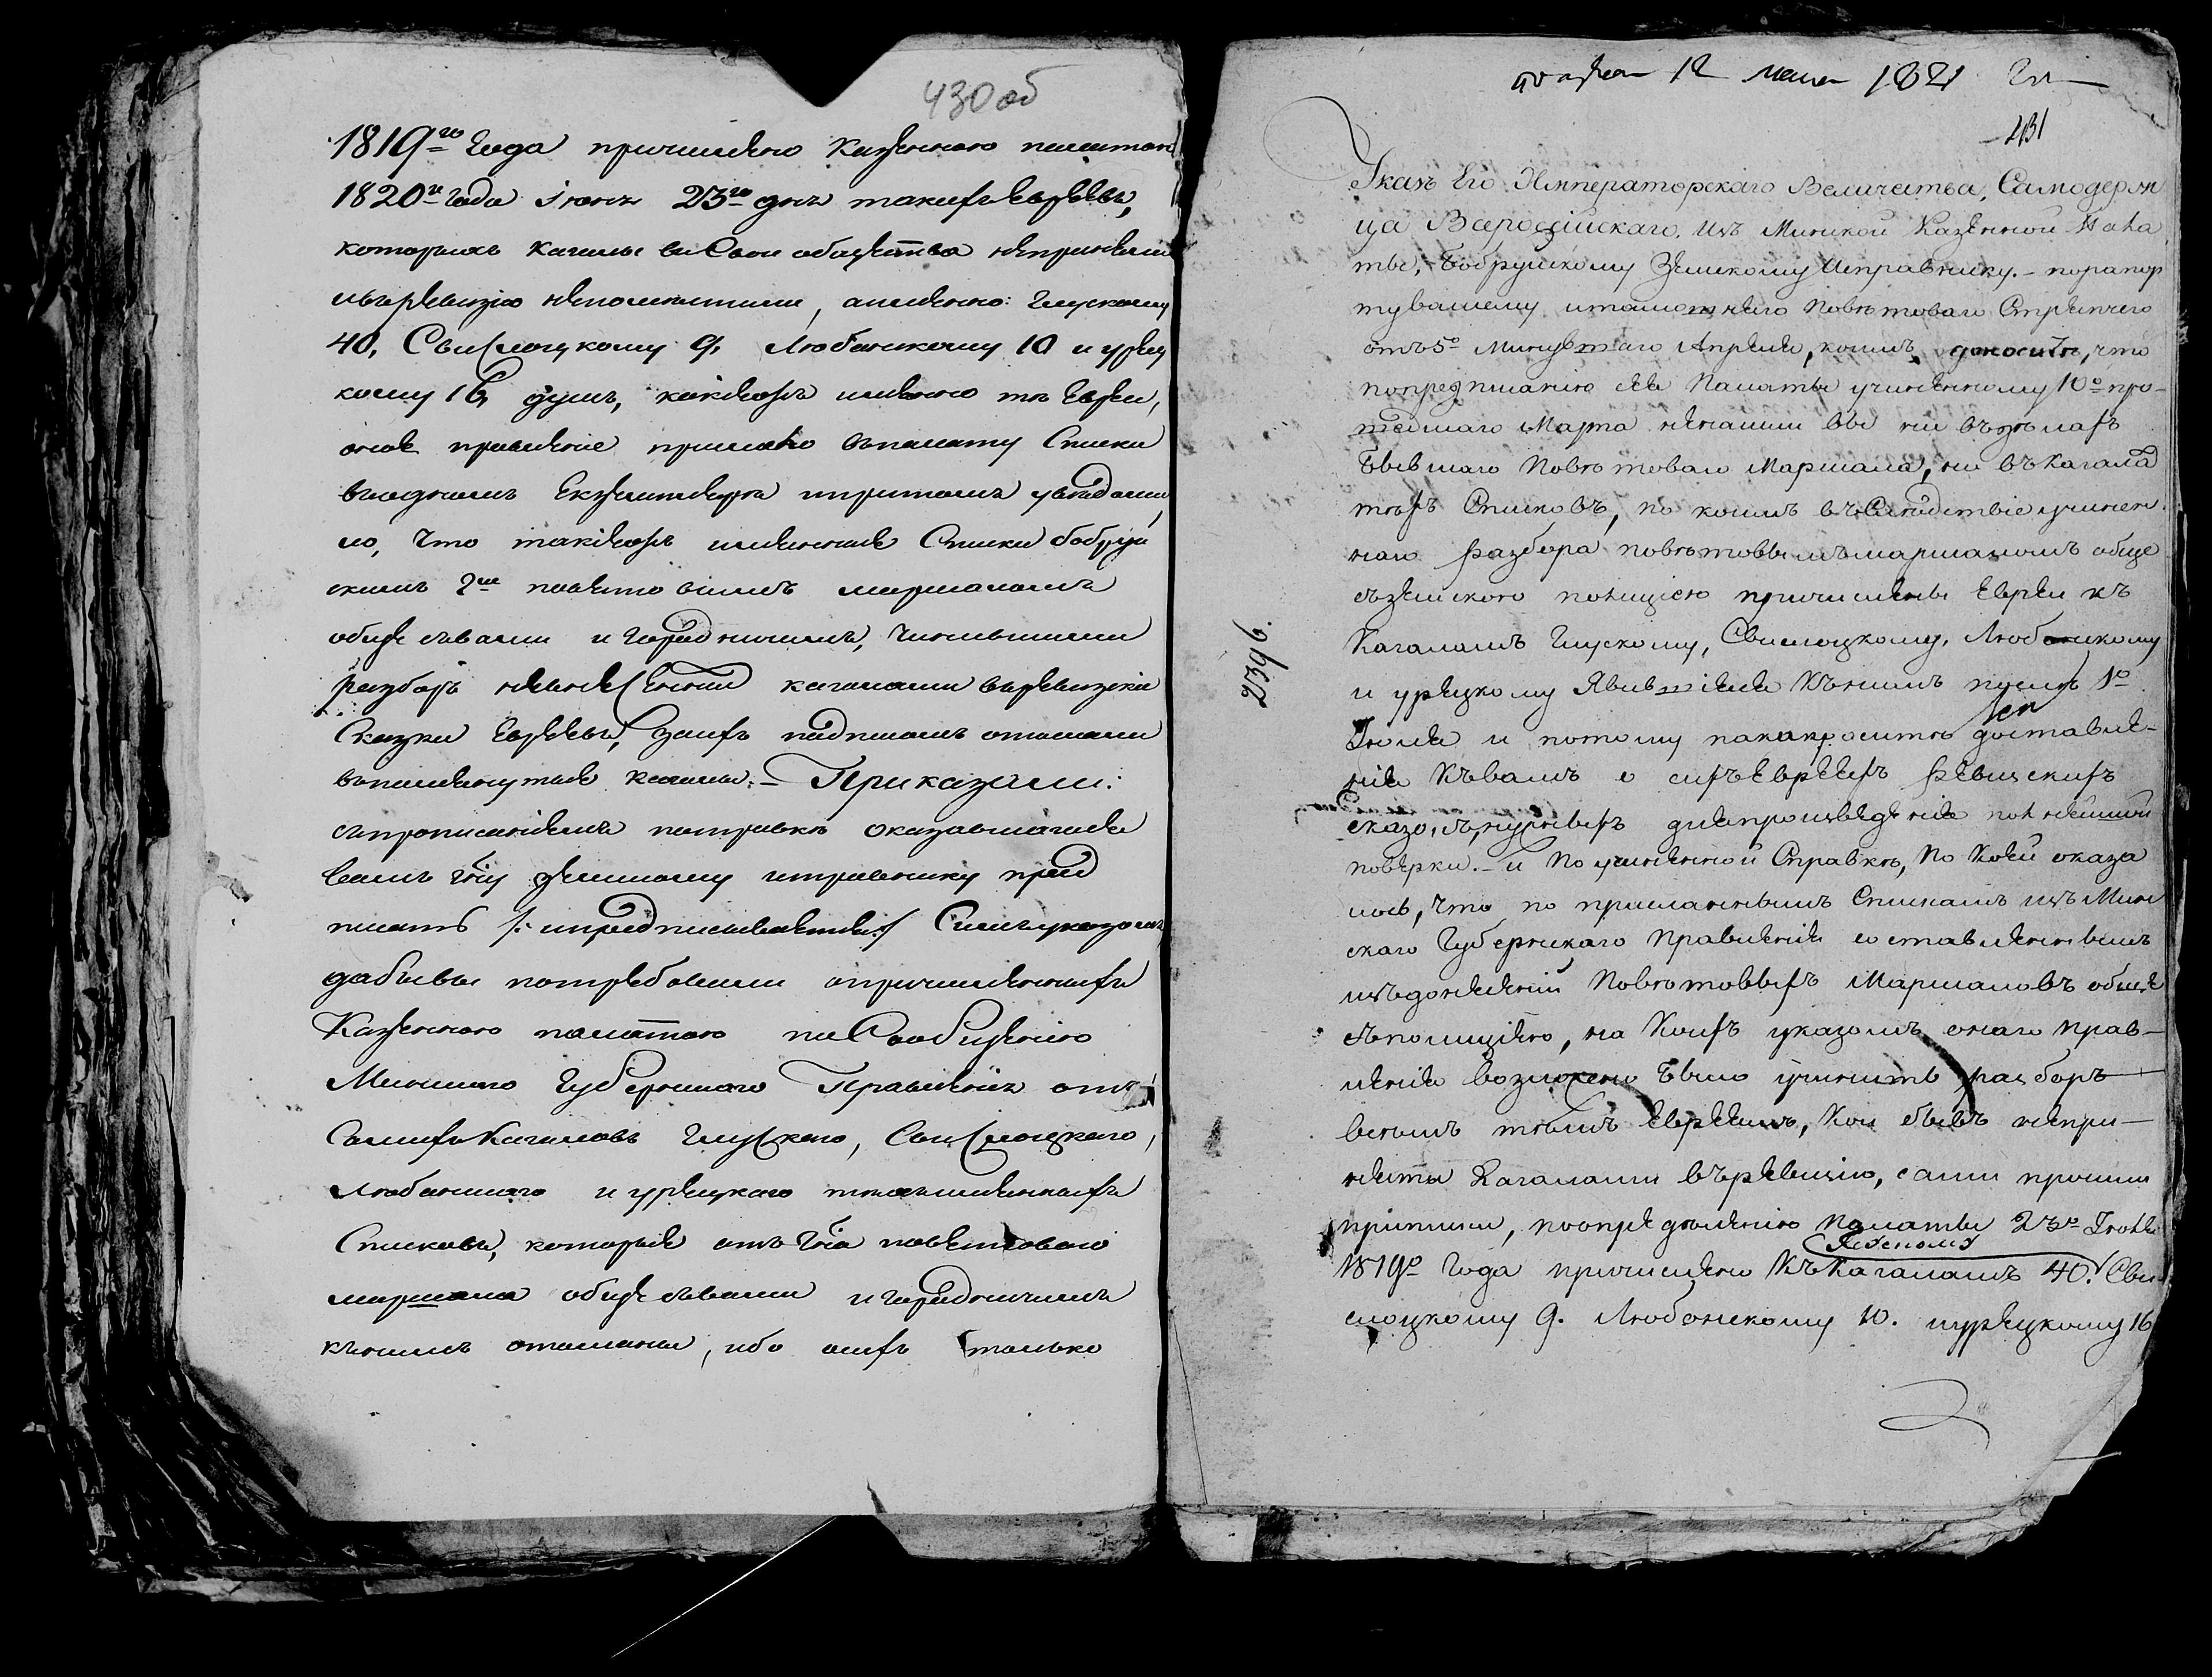 430 об
1819го года причислено Казенною палатою
1820го года Іюня 23го дня такихъ Евреевъ,
которыхъ кагалы въ Свои общества неприняли
ивъревизію непоместили, аименно: Глускому
40, Свислоцкому 9, Любанскому 10 и урец
кому 16, душъ, каковыхъ именно то Евреи,
оное правленіе прислало въпалату Списки
въодномъ Екземпляре иритомъ уведоми
ло, что таковыхъ именные Списки бобруй
скимъ повето вымъ маршаломъ
обще съвами и городничимъ, чинившими
разборъ невнесенныхъ кагалами въревизскія
Сказки Евреевъ, заихъ подписомъ отосланы
выпомянутые кагалы. – Приказали:
съпрописаніемъ поправкѣ оказавшагося
вамъ Гну земскому исправнику пред
писать /: ипредписывается :/ Симъ указомъ
дабывы потребовали опричисленныхъ
Казенною палатою по Сообщенію
Минскаго Губернскаго Правленія отъ
Самихъ Кагаловъ Глускаго, Свислоцкаго,
Любанскаго и урецкаго техъименныхъ
Списковъ, которые отъ Гна поветоваго
маршала обще съвами и городничимъ
кънимъ отосланы, ибо онихъ только
12 мая 1821 Го
431
Указъ Его Императорскаго Величества, Самодерж
ца Всеросійскаго, изъ Минской Казенной Пала
ты, Бобруйскому Земскому Исправнику. – порапор
ту вашему итамошняго Поветоваго Стряпчего
отъ 5го Минувшаго Апреля, коимъ доносите, что
попредписанію сея Палаты учиненному 10го про-
шедшаго Марта ненашли вы ни въделахъ
бывшаго Поветоваго Маршала, ни въкагала
техъ Списковъ, по коимъ въследствіе учинен
наго разбора поветовымъмаршаломъ обще
съземскою полиціею причислены Евреи къ
Кагаламъ Глускому, Свислоцкому, Любанскому
и урецкому Явившіеся Кънимъ после 1го
Іюля и потому доставле-
нія Къвамъ о сихъЕвреехъ ревискихъ
сказокъ, нужныхъ дляпроизведенія полнейшей
поверки. – И По учиненной Справке, По Коей оказа
лось, что по присланнымъ Спискамъ изъ Мин
скаго Губернскаго Правленія составленнымъ
изъдонесеній Поветовыхъ Маршаловъ обще
съполиціею, на Коихъ указомъ онаго прав-
ленія возложено было учинить разборъ
всемъ темъ Евреямъ, Кои бывъ непри-
няты Кагалами въревизію, сами
, поопределенію Палаты 23го Іюля
1819го Года причислено КъКагаламъ Глускому 40. Сви
слоцкому 9. Любанскому 10. иурецкому 16
2396.